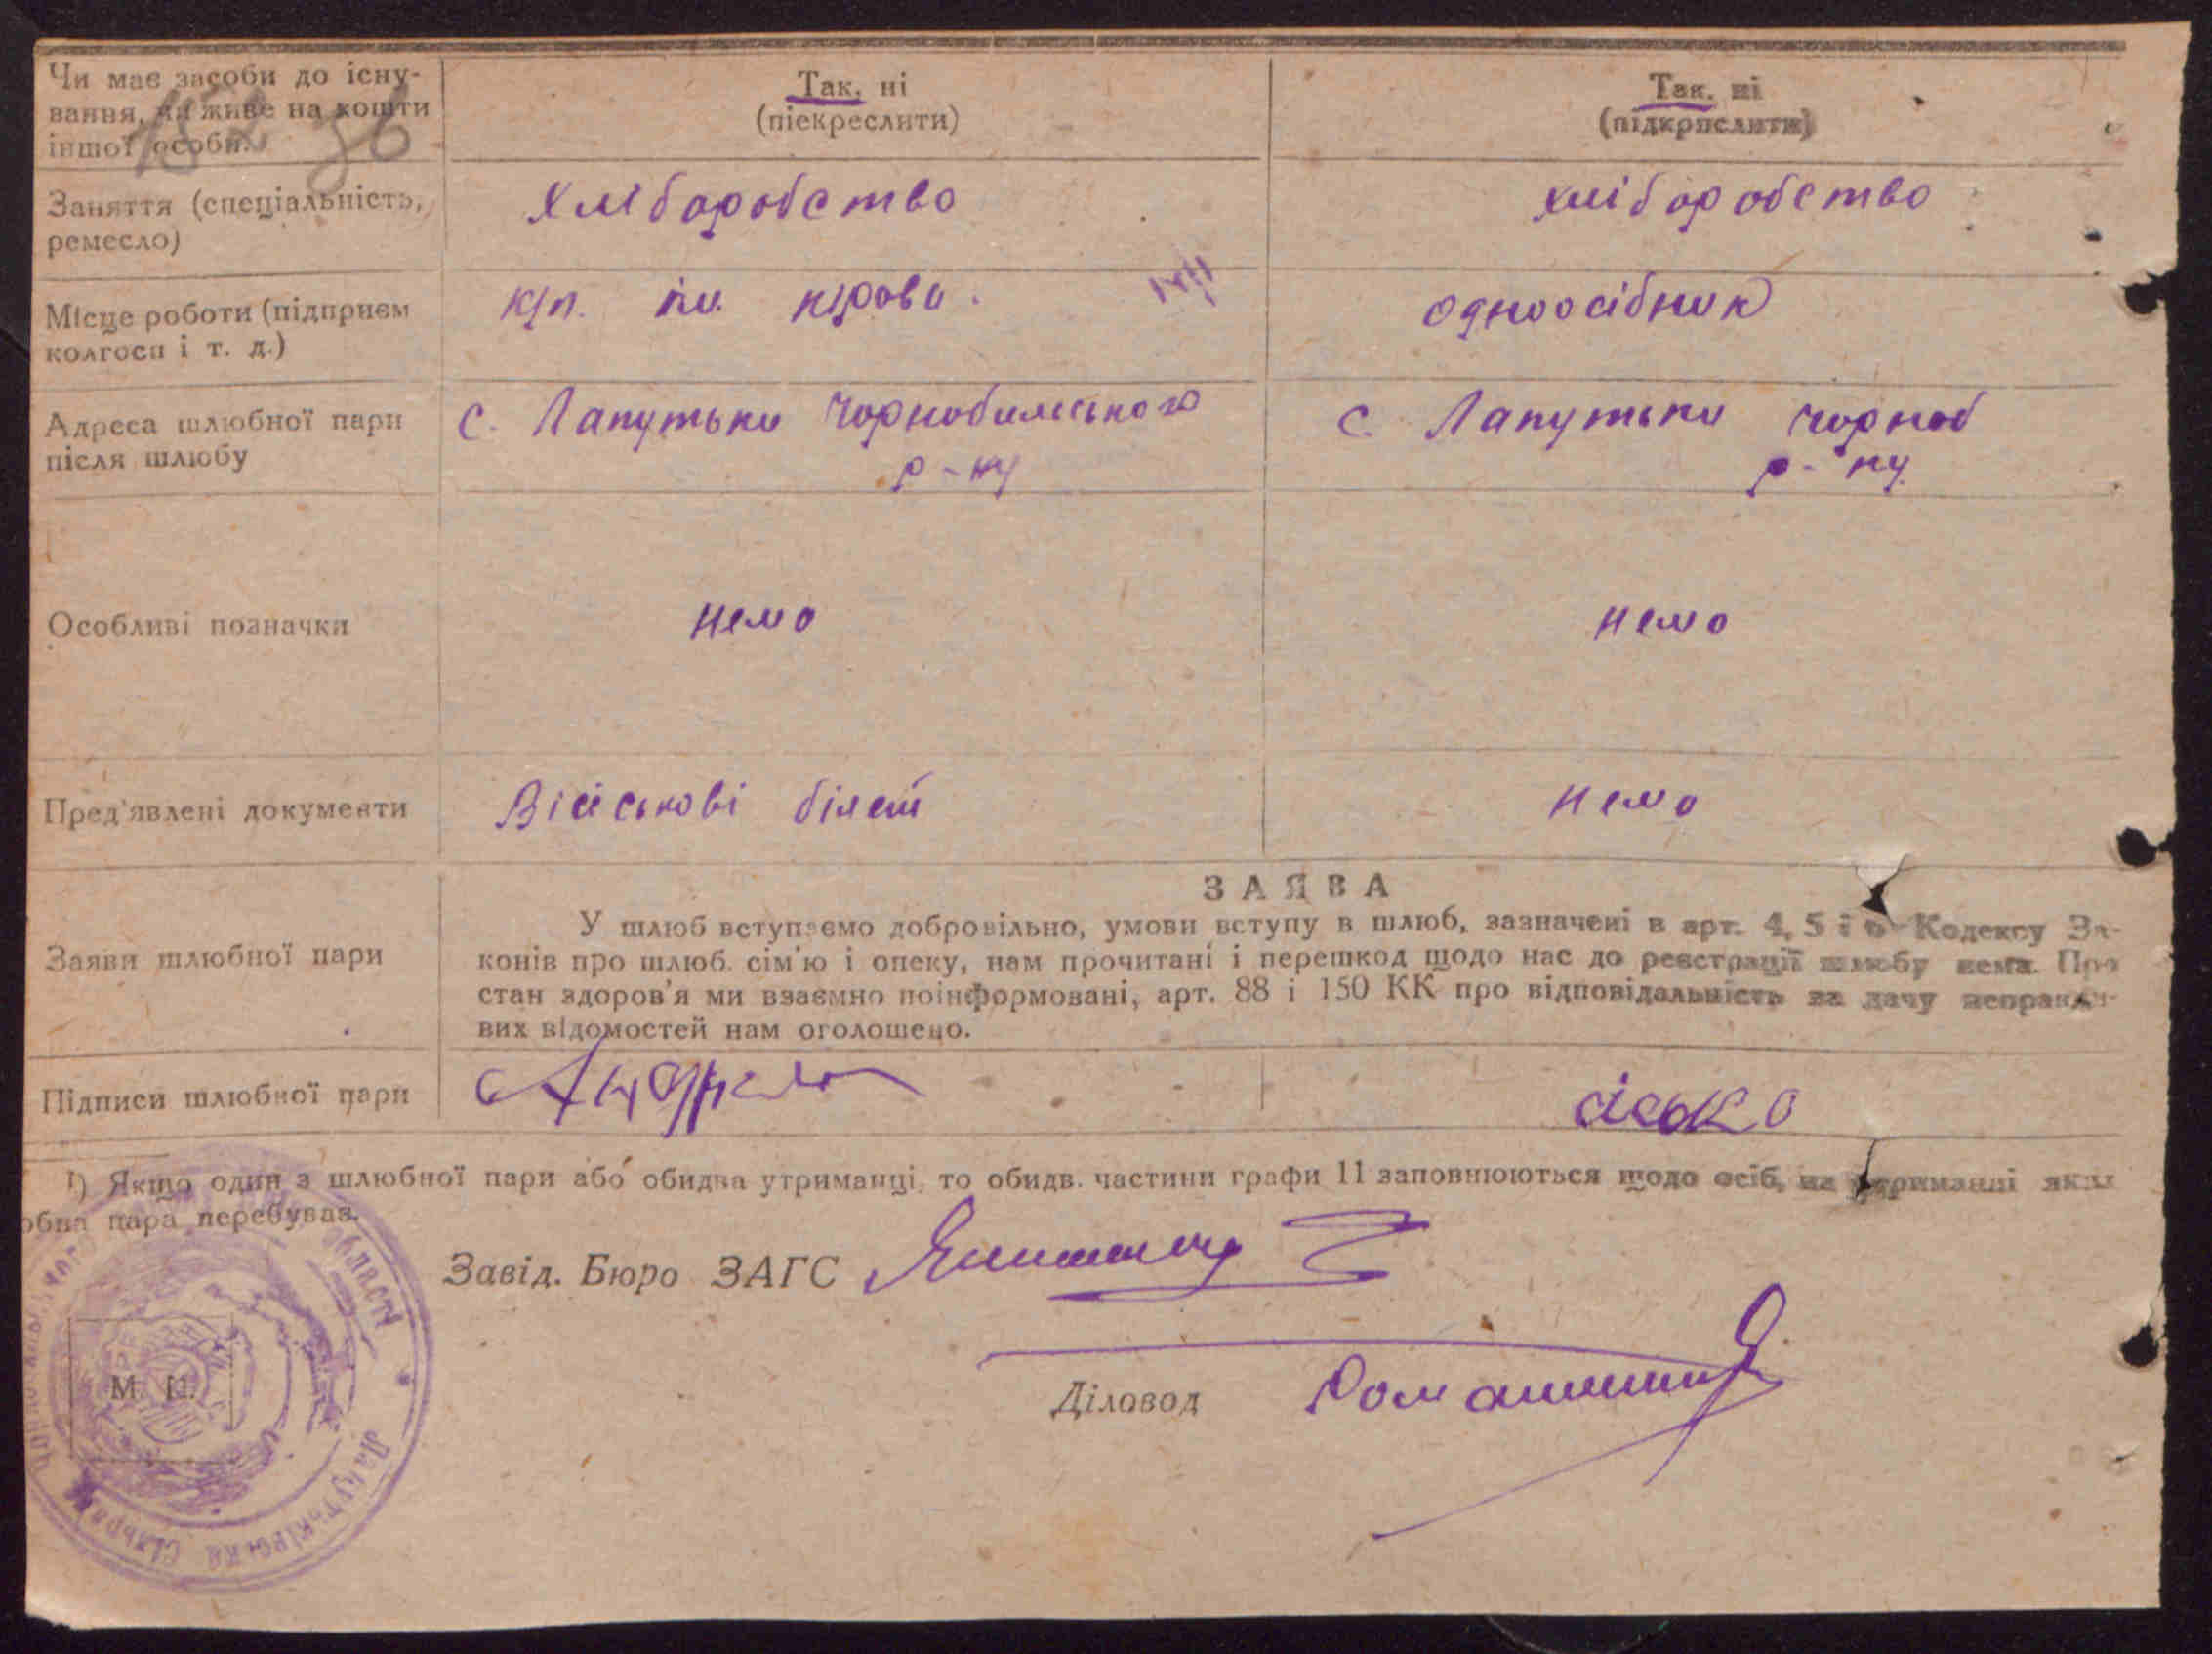 Чи має засоби до існу-
вання, чи живе на кошти
іншої особи.
Так, ні
(піекреслити)
Так, ні
(підкрислити)
Заняття (спеціальність,
ремесло)
Хліборобство
хліборобство
Місце роботи (підприєм
колгосп і т. д.)
к/п. ім. кірова.
одноосібник
Адреса шлюбної пари
після шлюбу
с. Лапутьки Чорнобильського
р-ну
с. Лапутьки чорноб
р-ну
Особливі позначки
нема
нема
Пред'явлені документи
Військові білет
нема
ЗАЯВА
Заяви шлюбної пари
У шлюб вступаємо добровільно, умови вступу в шлюб, зазначені в арт. 4, 5 і 6 Кодексу За-
конів про шлюб. сім'ю і опеку, нам прочитані і перешкод щодо нас до реєстрації шлюбу нема. Про
стан здоров'я ми взаємно поінформовані, арт. 88 і 150 КК про відповідальність за дачу неправди-
вих відомостей нам оголошено.
Підписи шлюбної пари
1) Якщо один з шлюбної пари або обидва утриманці, то обидв. частини графи 11 заповнюються щодо осіб, на утриманні яких
обна пара перебуває.
Завід. Бюро ЗАГС
М. П.
Діловод
області
Лапутьківська Сільрада